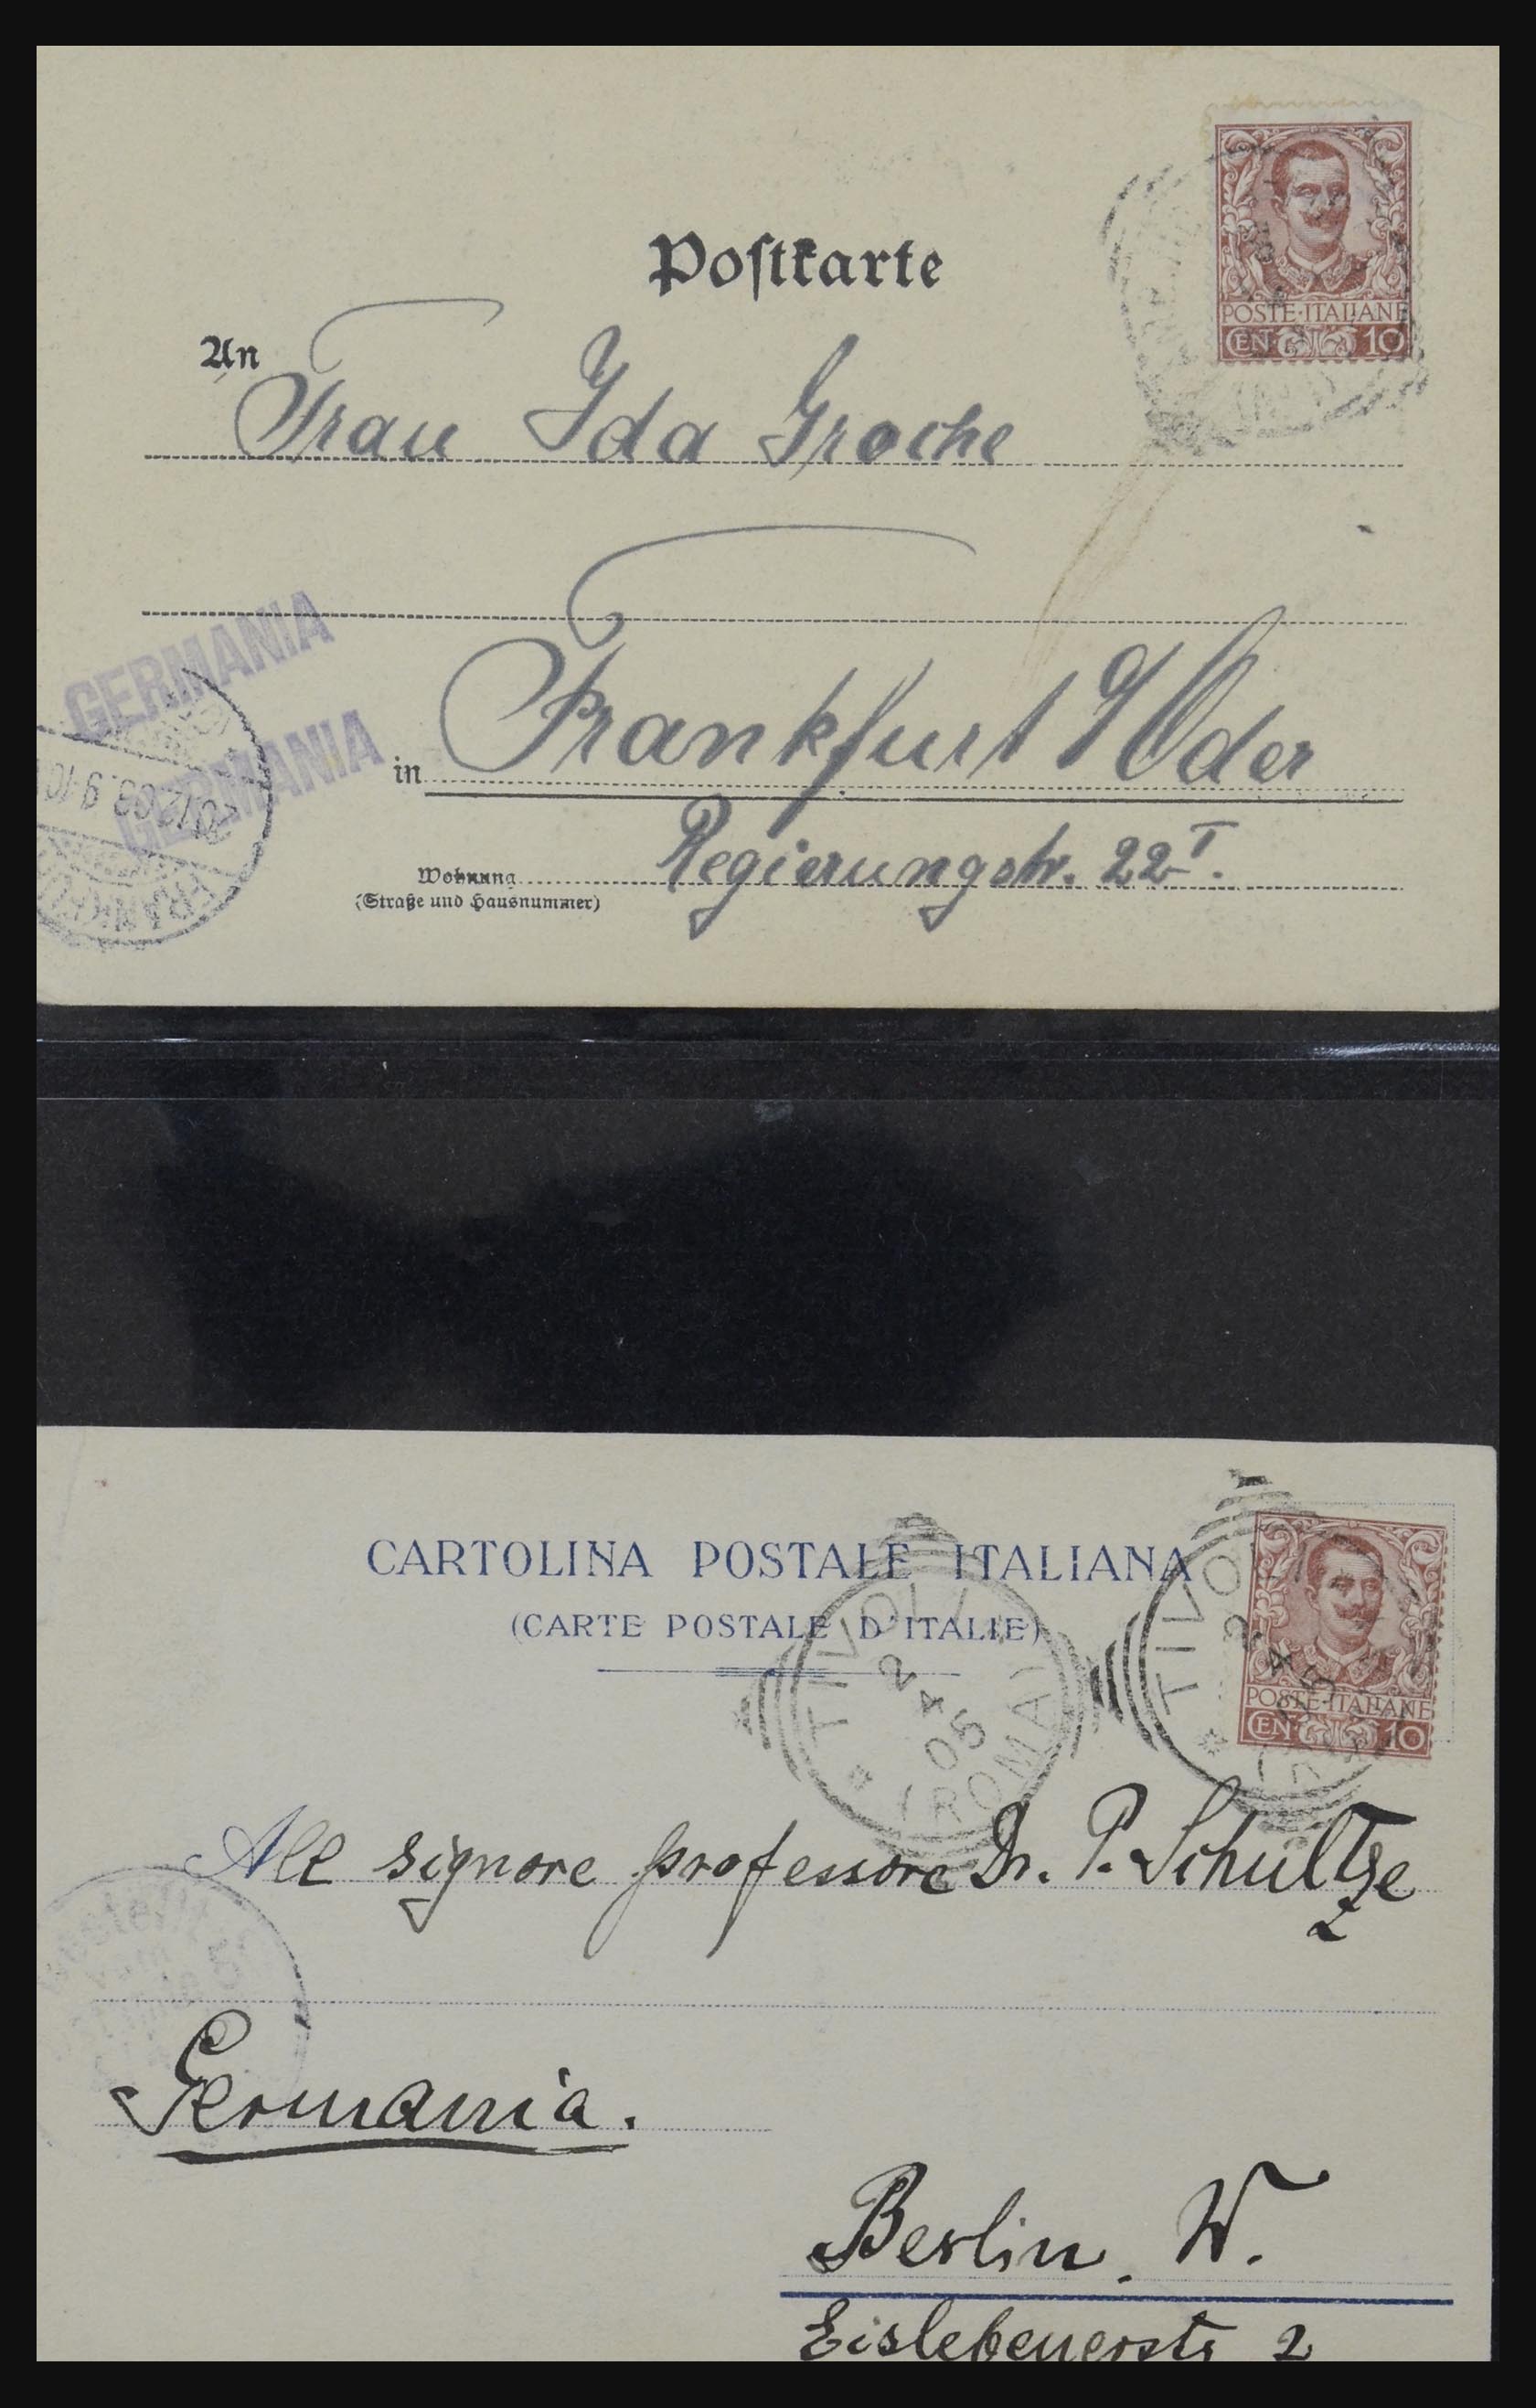 Postkarte
POSTE·ITALIANE
CEN 10
An
Frau Ida Groche
GERMANIA
GERMANIA
in Frankfurt a/Oder
Regierungstr. 22 I.
Wohnung
(Straße und Hausnummer)
CARTOLINA POSTALE ITALIANA
(CARTE POSTALE D'ITALIE)
TIVOLI
2 4 05
(ROMA)
TIVOLI
2 4 05
POSTE·ITALIANE
CEN 10
All signore professore Dr. P. Schultze
Germania.
Berlin. W.
Eislebenerstr 2